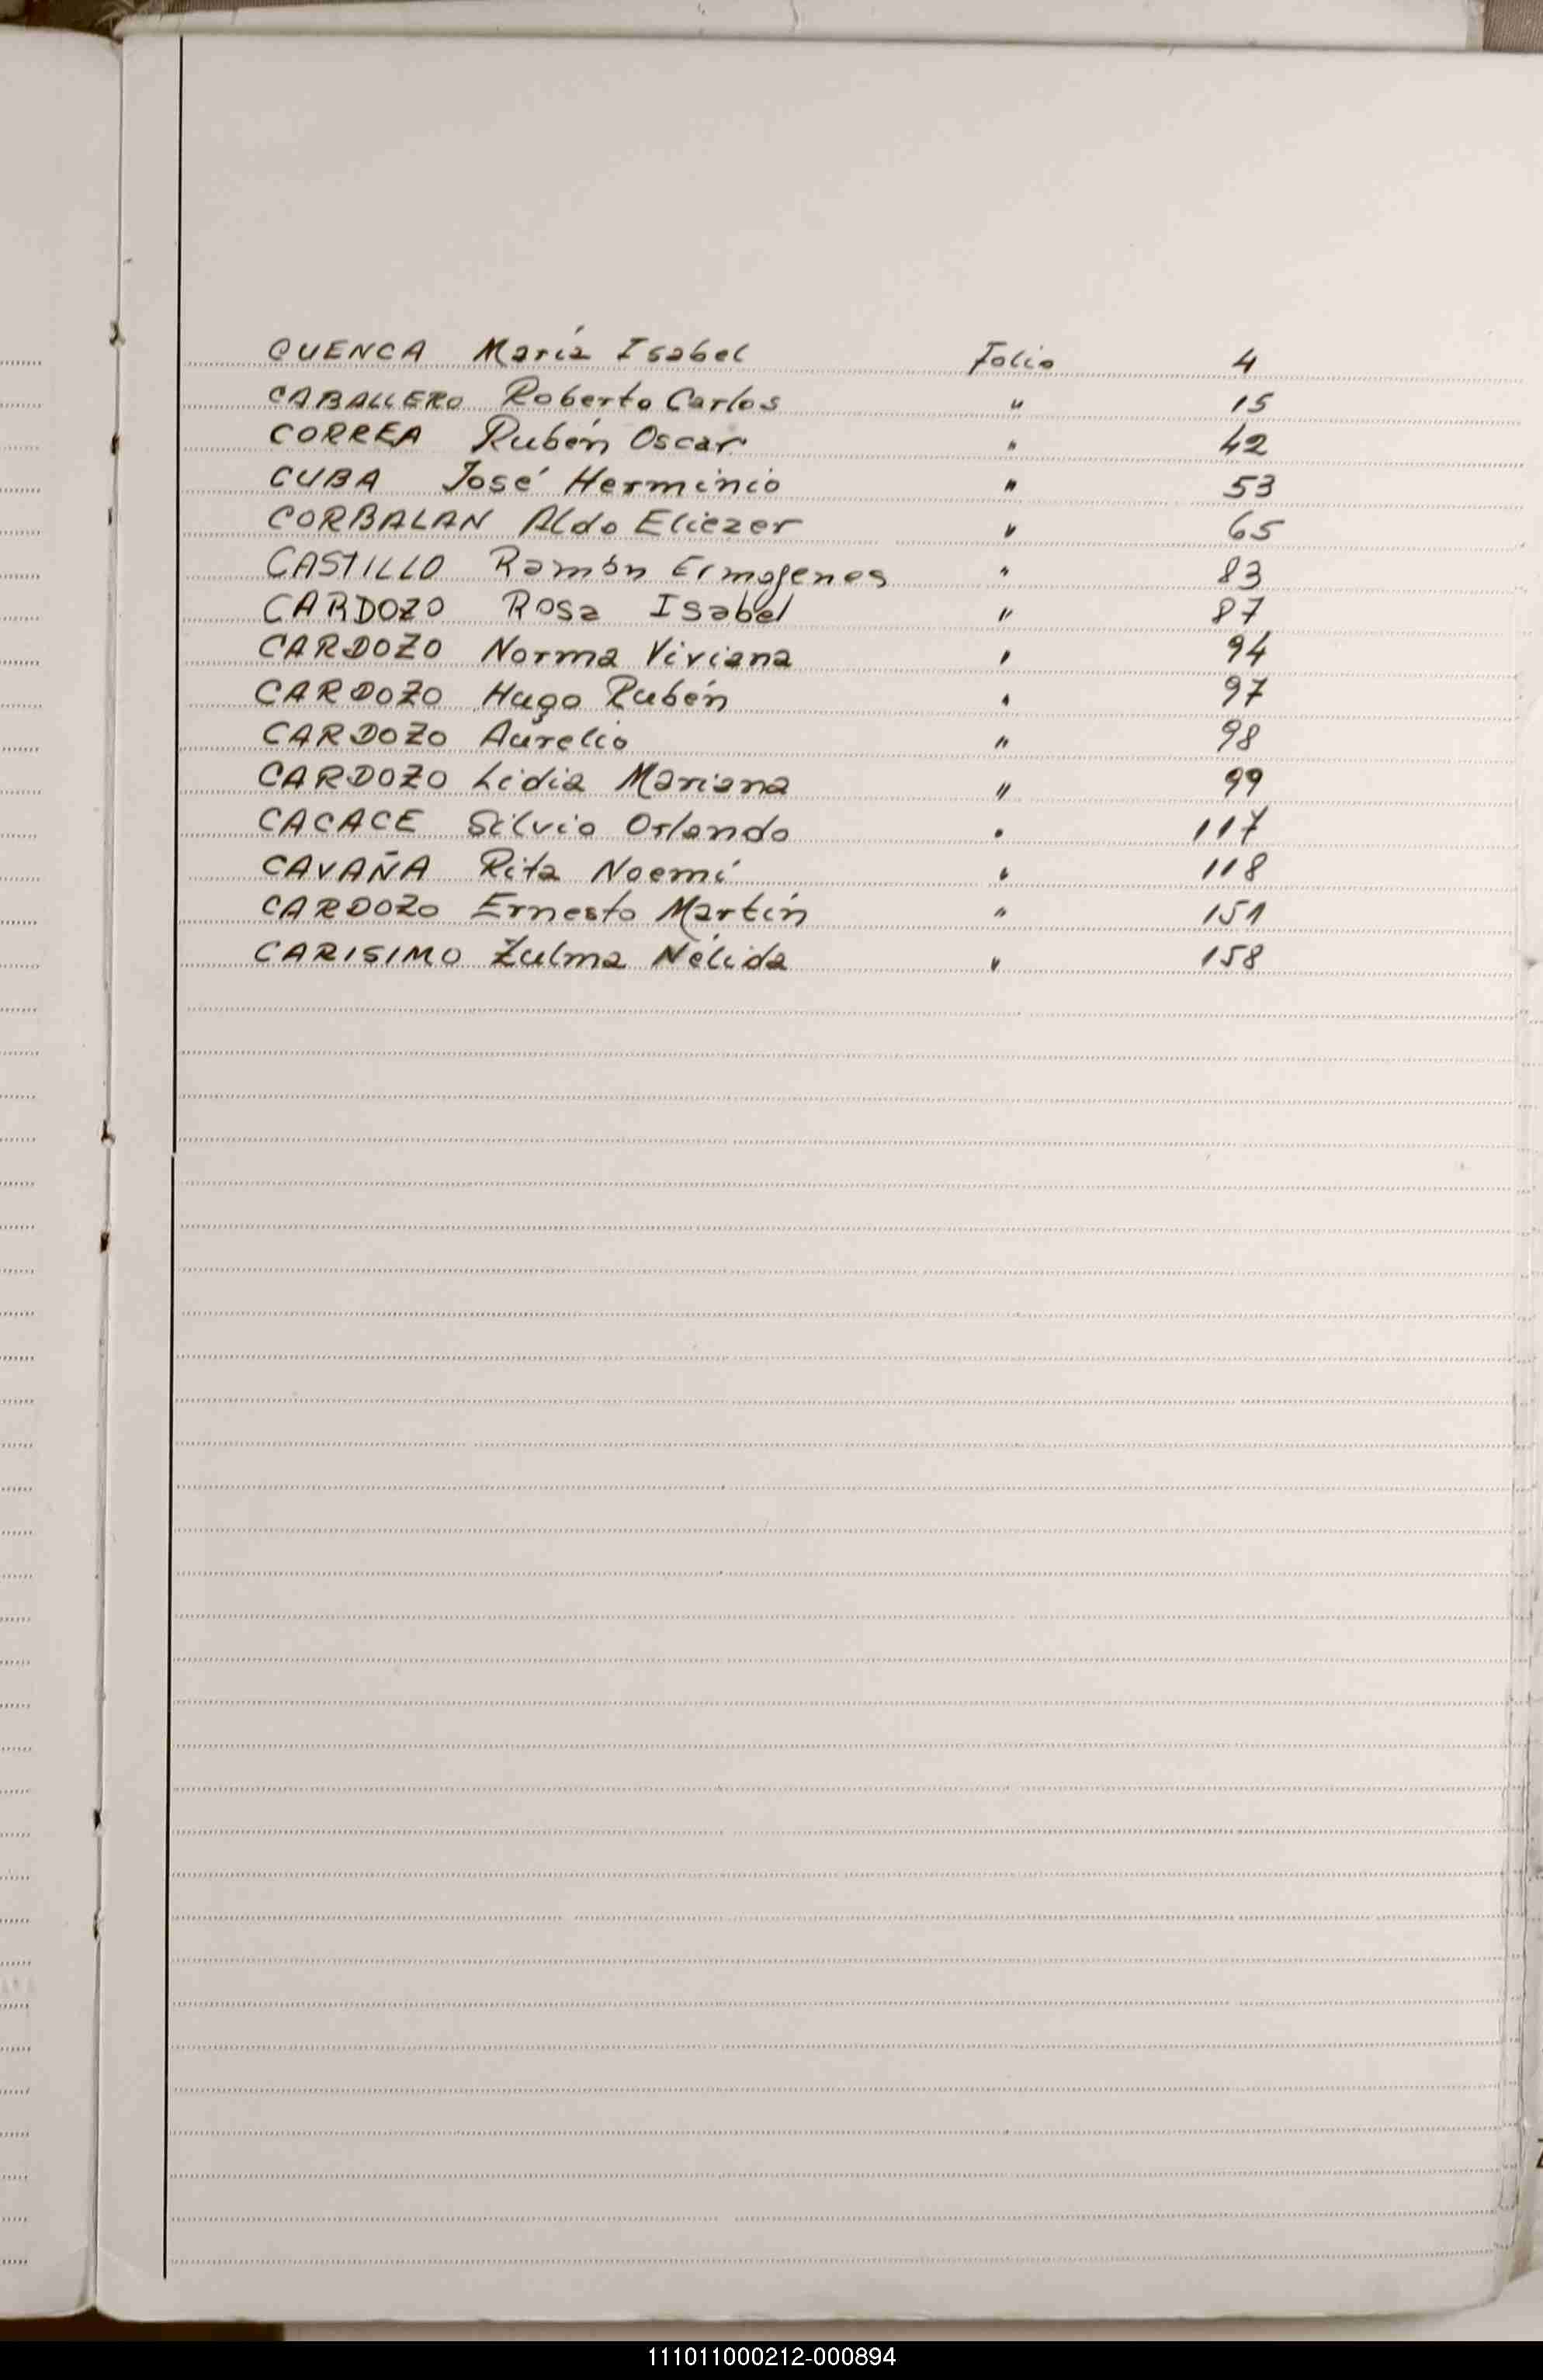 CUENCA María Isabel Folio 4
CABALLERO Roberto Carlos " 15
CORREA Rubén Oscar " 42
CUBA José Herminio " 53
CORBALAN Aldo Eliezer " 65
CASTILLO Ramón Ermogenes " 83
CARDOZO Rosa Isabel " 87
CARDOZO Norma Viviana " 94
CARDOZO Hugo Rubén " 97
CARDOZO Aurelio " 98
CARDOZO Lidia Mariana " 99
CACACE Silvio Orlando " 117
CAVAÑA Rita Noemí " 118
CARDOZO Ernesto Martín " 151
CARISIMO Zulma Nélida " 158
111011000212-000894